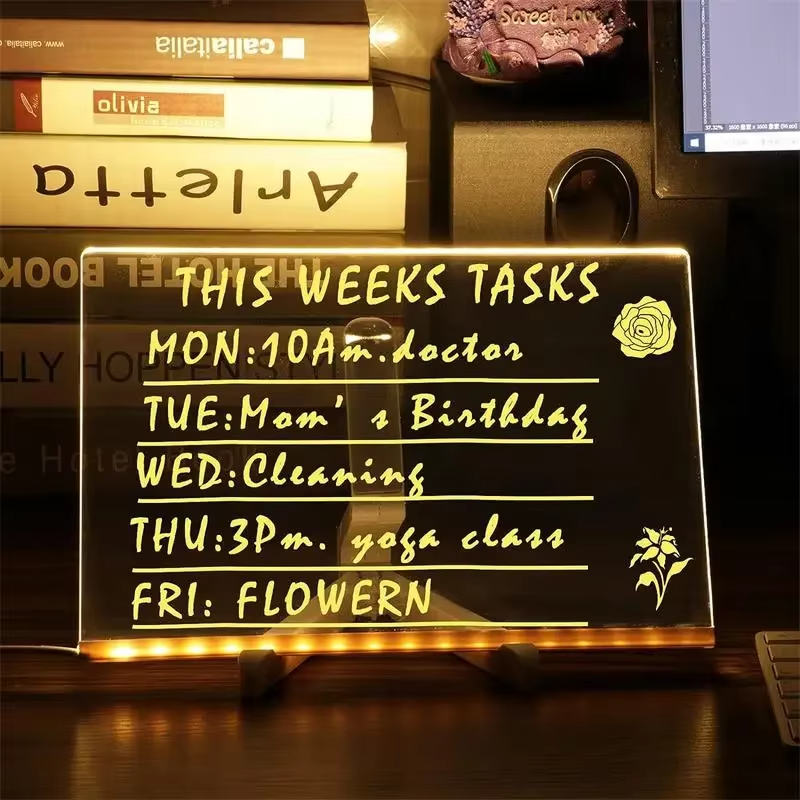 www.caliaitalia
caliaitalia
Sweet Love
olivia
Arletta
THE HOTEL BOOK
THIS WEEKS TASKS
MON:10Am.doctor
TUE:Mom's Birthdag
WED:Cleaning
THU:3Pm. yoga class
FRI: FLOWERN